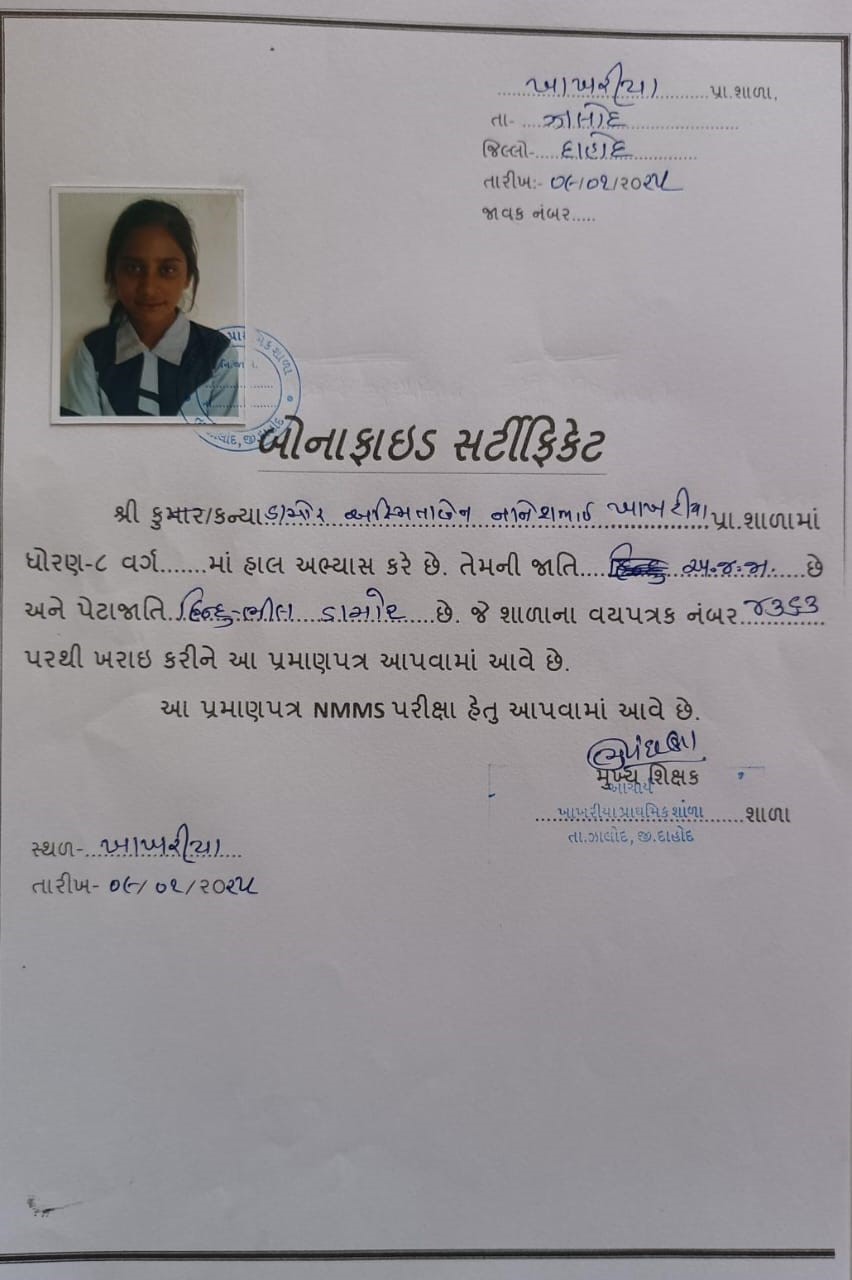 ખાખરીયા પ્રા.શાળા,
તા- ઝાલોદ
જિલ્લો- દાહોદ
તારીખ:- ૦૯/૦૧/૨૦૨૫
જાવક નંબર.....
બોનાફાઇડ સર્ટીફિકેટ
શ્રી કુમાર/કન્યા ડામોર અસ્મિતાબેન નાનેશભાઈ ખાખરીયા પ્રા.શાળામાં
ધોરણ-૮ વર્ગ.......માં હાલ અભ્યાસ કરે છે. તેમની જાતિ હિન્દુ અ.જ.જા. છે
અને પેટાજાતિ હિન્દુ-ભીલ ડામોર છે. જે શાળાના વયપત્રક નંબર ૪૩૬૩
પરથી ખરાઇ કરીને આ પ્રમાણપત્ર આપવામાં આવે છે.
આ પ્રમાણપત્ર NMMS પરીક્ષા હેતુ આપવામાં આવે છે.
મુખ્ય શિક્ષક
આચાર્ય
ખાખરીયા પ્રાથમિક શાળા શાળા
તા.ઝાલોદ, જી.દાહોદ
સ્થળ- ખાખરીયા
તારીખ- ૦૯/૦૧/૨૦૨૫